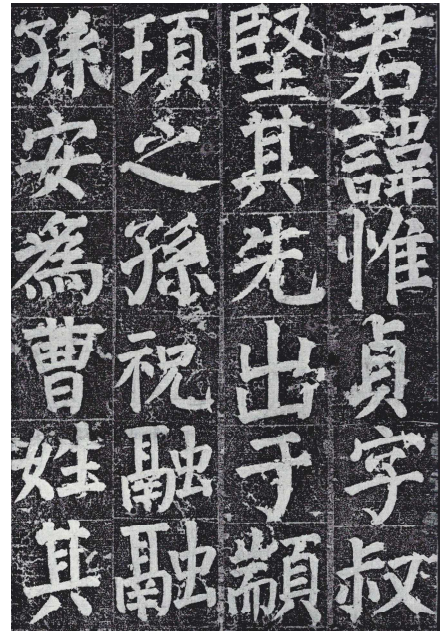 君諱惟貞字叔
堅其先出于顓
頊之孫祝融融
孫安為曹姓其